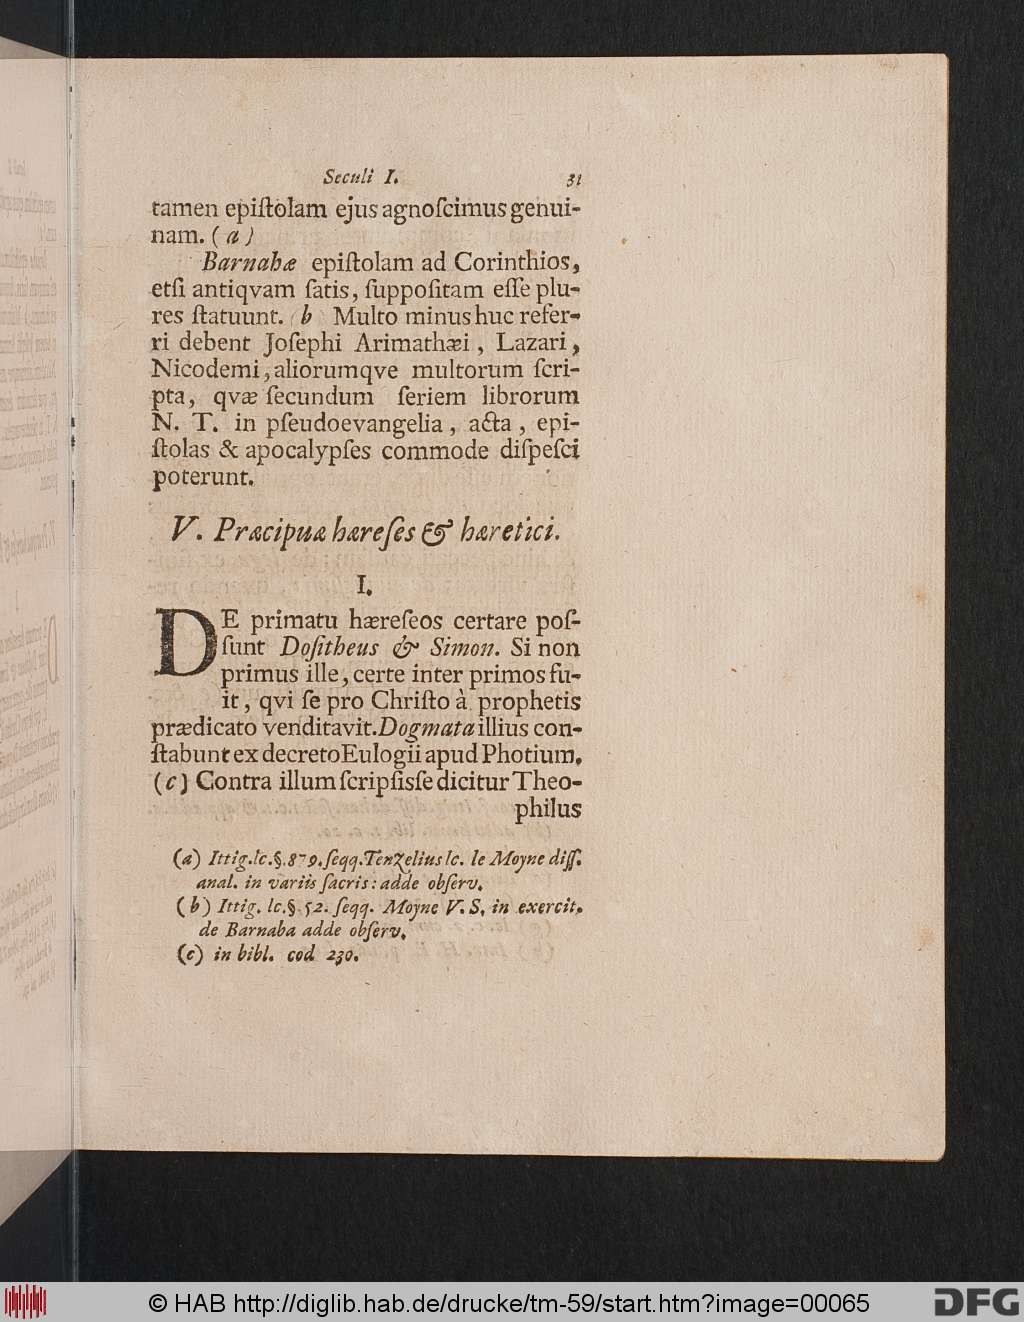 Seculi I. 31
tamen epiſtolam ejus agnoſcimus genui-
nam. ( a )
Barnabæ epiſtolam ad Corinthios,
etſi antiqvam ſatis, ſuppoſitam eſſe plu-
res ſtatuunt. ( b Multo minus huc refer-
ri debent Joſephi Arimathæi, Lazari,
Nicodemi, aliorumqve multorum ſcri-
pta, qvæ ſecundum ſeriem librorum
N. T. in pſeudoevangelia, acta, epi-
ſtolas & apocalypſes commode diſpeſci
poterunt.
V. Præcipuæ hæreſes & hæretici.
I.
DE primatu hæreſeos certare poſ-
ſunt Doſitheus & Simon. Si non
primus ille, certe inter primos fu-
it, qvi ſe pro Chriſto à prophetis
prædicato venditavit. Dogmata illius con-
ſtabunt ex decreto Eulogii apud Photium.
(c) Contra illum ſcripſisſe dicitur Theo-
philus
(a) Ittig. lc. §. 879. ſeqq. Tenzelius lc. le Moyne diſſ.
anal. in variis ſacris: adde obſerv.
(b) Ittig. lc. §. 52. ſeqq. Moyne V. S. in exercit.
de Barnaba adde obſerv.
(c) in bibl. cod 230.
© HAB http://diglib.hab.de/drucke/tm-59/start.htm?image=00065
DFG